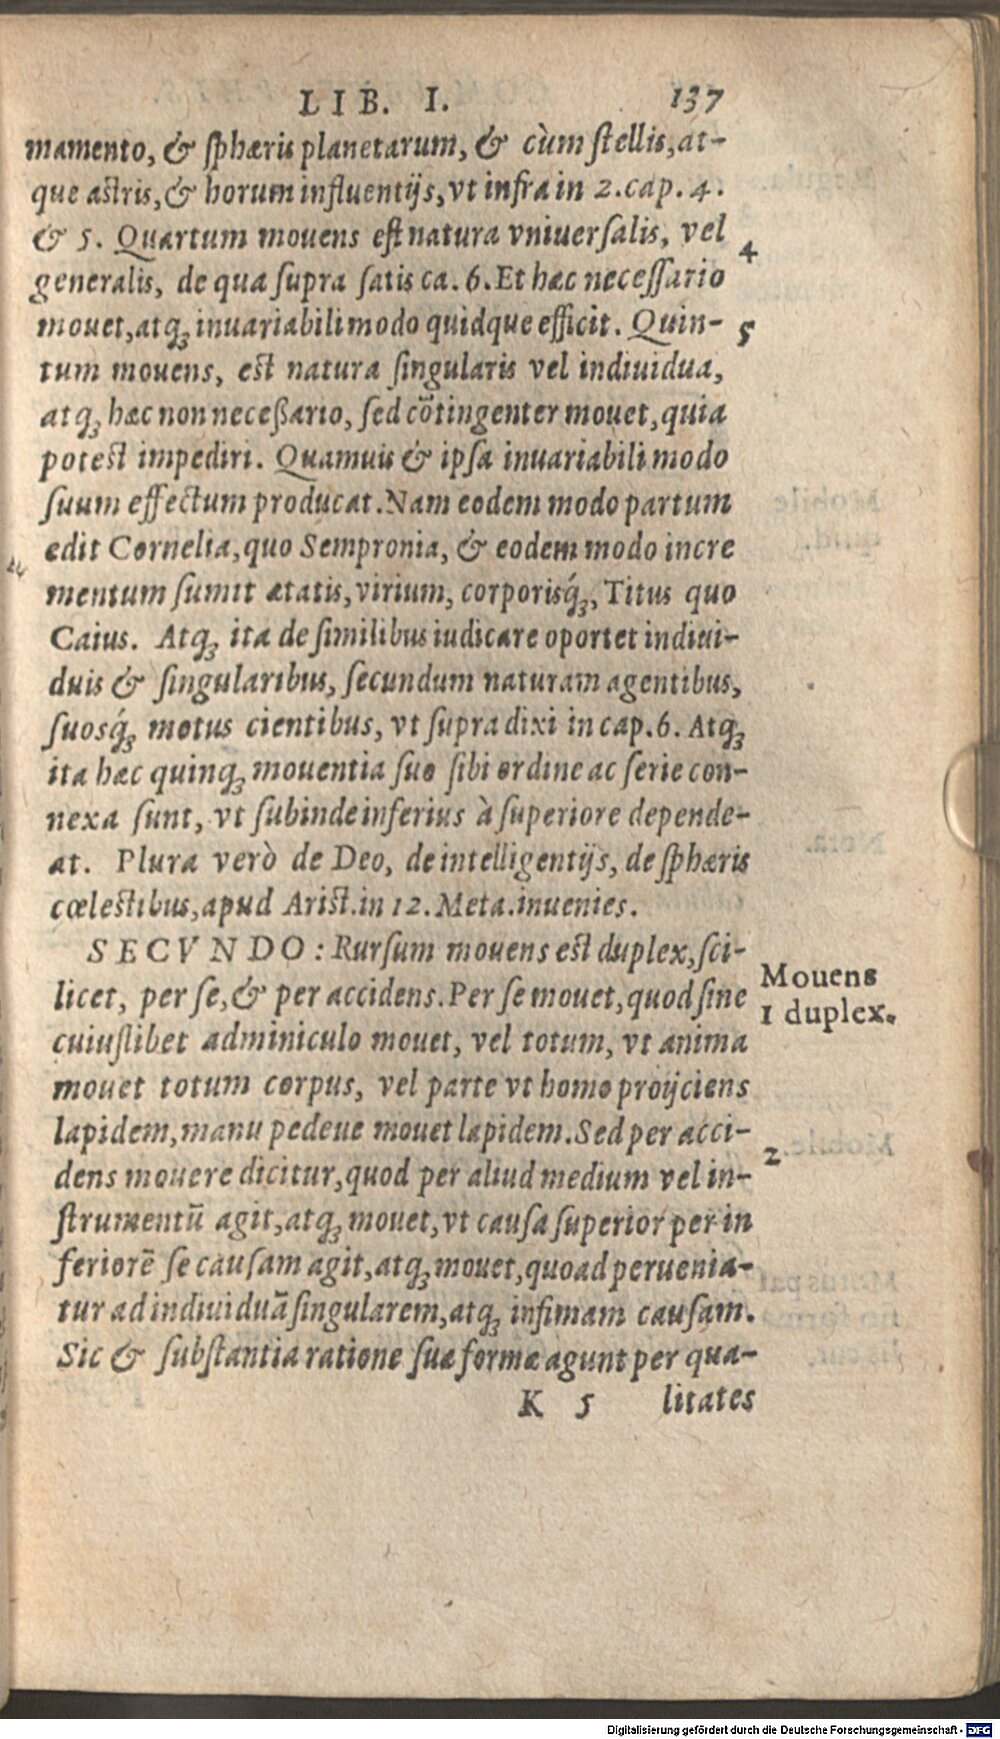 LIB. I. 137
mamento, & sphæris planetarum, & cùm stellis, at-
que astris, & horum influentijs, vt infra in 2. cap. 4.
& 5. Quartum mouens est natura vniuersalis, vel
4
generalis, de qua supra satis ca. 6. Et hæc necessario
mouet, atq; inuariabili modo quidque efficit. Quin-
5
tum mouens, est natura singularis vel indiuidua,
atq; hæc non neceßario, sed cõtingenter mouet, quia
potest impediri. Quamuis & ipsa inuariabili modo
suum effectum producat. Nam eodem modo partum
edit Cornelia, quo Sempronia, & eodem modo incre
mentum sumit ætatis, virium, corporisq́;, Titus quo
Caius. Atq; ita de similibus iudicare oportet indiui-
duis & singularibus, secundum naturam agentibus,
suosq́; motus cientibus, vt supra dixi in cap. 6. Atq;
ita hæc quinq; mouentia suo sibi ordine ac serie con-
nexa sunt, vt subinde inferius à superiore depende-
at. Plura verò de Deo, de intelligentijs, de sphæris
cœlestibus, apud Arist. in 12. Meta. inuenies.
SECVNDO: Rursum mouens est duplex, sci-
Mouens
licet, per se, & per accidens. Per se mouet, quod sine
1 duplex.
cuiuslibet adminiculo mouet, vel totum, vt anima
mouet totum corpus, vel parte vt homo proijciens
lapidem, manu pedeue mouet lapidem. Sed per acci-
2
dens mouere dicitur, quod per aliud medium vel in-
strumentũ agit, atq; mouet, vt causa superior per in
feriorẽ se causam agit, atq; mouet, quoad peruenia-
tur ad indiuiduã singularem, atq; infimam causam.
Sic & substantia ratione suæ formæ agunt per qua-
K 5 litates
Digitalisierung gefördert durch die Deutsche Forschungsgemeinschaft - DFG